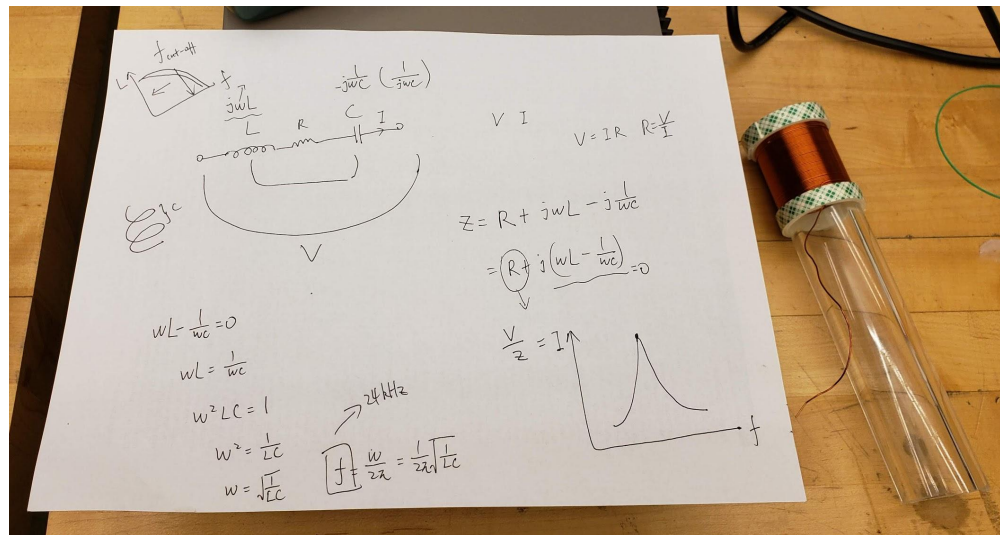 f cut-off
L f
jwL
-j 1/wC (1/jwC)
L R C I
V I
V = IR R = V/I
} C
V
Z = R + jwL - j 1/wC
= R + j(wL - 1/wC) = 0
V/Z = I
f
wL - 1/wC = 0
wL = 1/wC
w²LC = 1
w² = 1/LC
w = √(1/LC)
24kHz
f = w/2π = 1/2π √(1/LC)